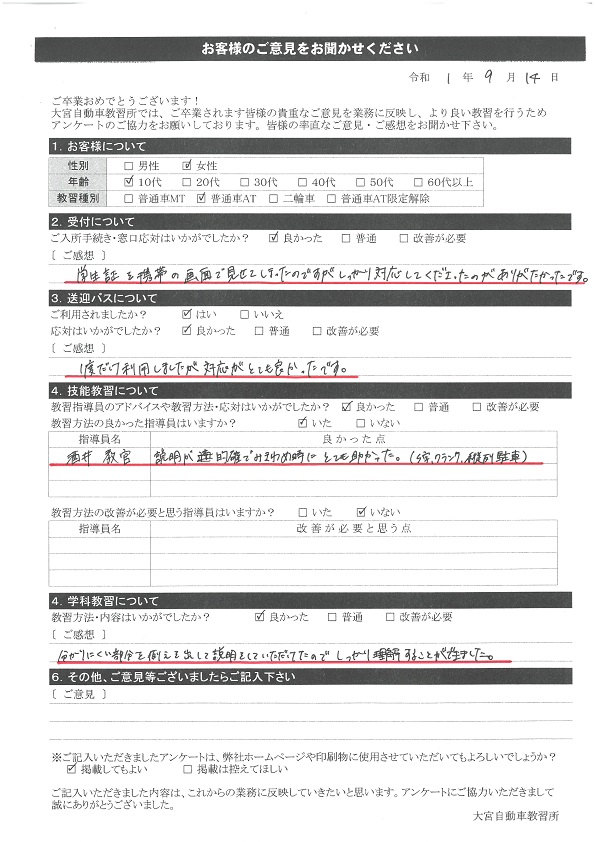 お客様のご意見をお聞かせください
令和 1 年 9 月 14 日
ご卒業おめでとうございます!
大宮自動車教習所では、ご卒業されます皆様の貴重なご意見を業務に反映し、より良い教習を行うため
アンケートのご協力をお願いしております。皆様の率直なご意見・ご感想をお聞かせ下さい。
1. お客様について
性別 □ 男性 ☑ 女性
年齢 ☑ 10代 □ 20代 □ 30代 □ 40代 □ 50代 □ 60代以上
教習種別 □ 普通車MT ☑ 普通車AT □ 二輪車 □ 普通車AT限定解除
2. 受付について
ご入所手続き・窓口応対はいかがでしたか? ☑ 良かった □ 普通 □ 改善が必要
〔 ご感想 〕
学生証を携帯の画面で見せてしまったのですがしっかり対応してくださったのがありがたかったです。
3. 送迎バスについて
ご利用されましたか? ☑ はい □ いいえ
応対はいかがでしたか? ☑ 良かった □ 普通 □ 改善が必要
〔 ご感想 〕
1度だけ利用しましたが対応がとても良かったです。
4. 技能教習について
教習指導員のアドバイスや教習方法・応対はいかがでしたか? ☑ 良かった □ 普通 □ 改善が必要
教習方法の良かった指導員はいますか? ☑ いた □ いない
指導員名 良かった点
酒井 教官 説明が 的確でみきわめ時にとても助かった。(S字、クランク、縦列駐車)
教習方法の改善が必要と思う指導員はいますか? □ いた ☑ いない
指導員名 改善が必要と思う点
4. 学科教習について
教習方法・内容はいかがでしたか? ☑ 良かった □ 普通 □ 改善が必要
〔 ご感想 〕
分かりにくい部分を例えを出して説明をしていただけたのでしっかり理解することができました。
6. その他、ご意見等ございましたらご記入下さい
〔 ご意見 〕
※ご記入いただきましたアンケートは、弊社ホームページや印刷物に使用させていただいてもよろしいでしょうか?
☑ 掲載してもよい □ 掲載は控えてほしい
ご記入いただきました内容は、これからの業務に反映していきたいと思います。アンケートにご協力いただきまして
誠にありがとうございました。
大宮自動車教習所